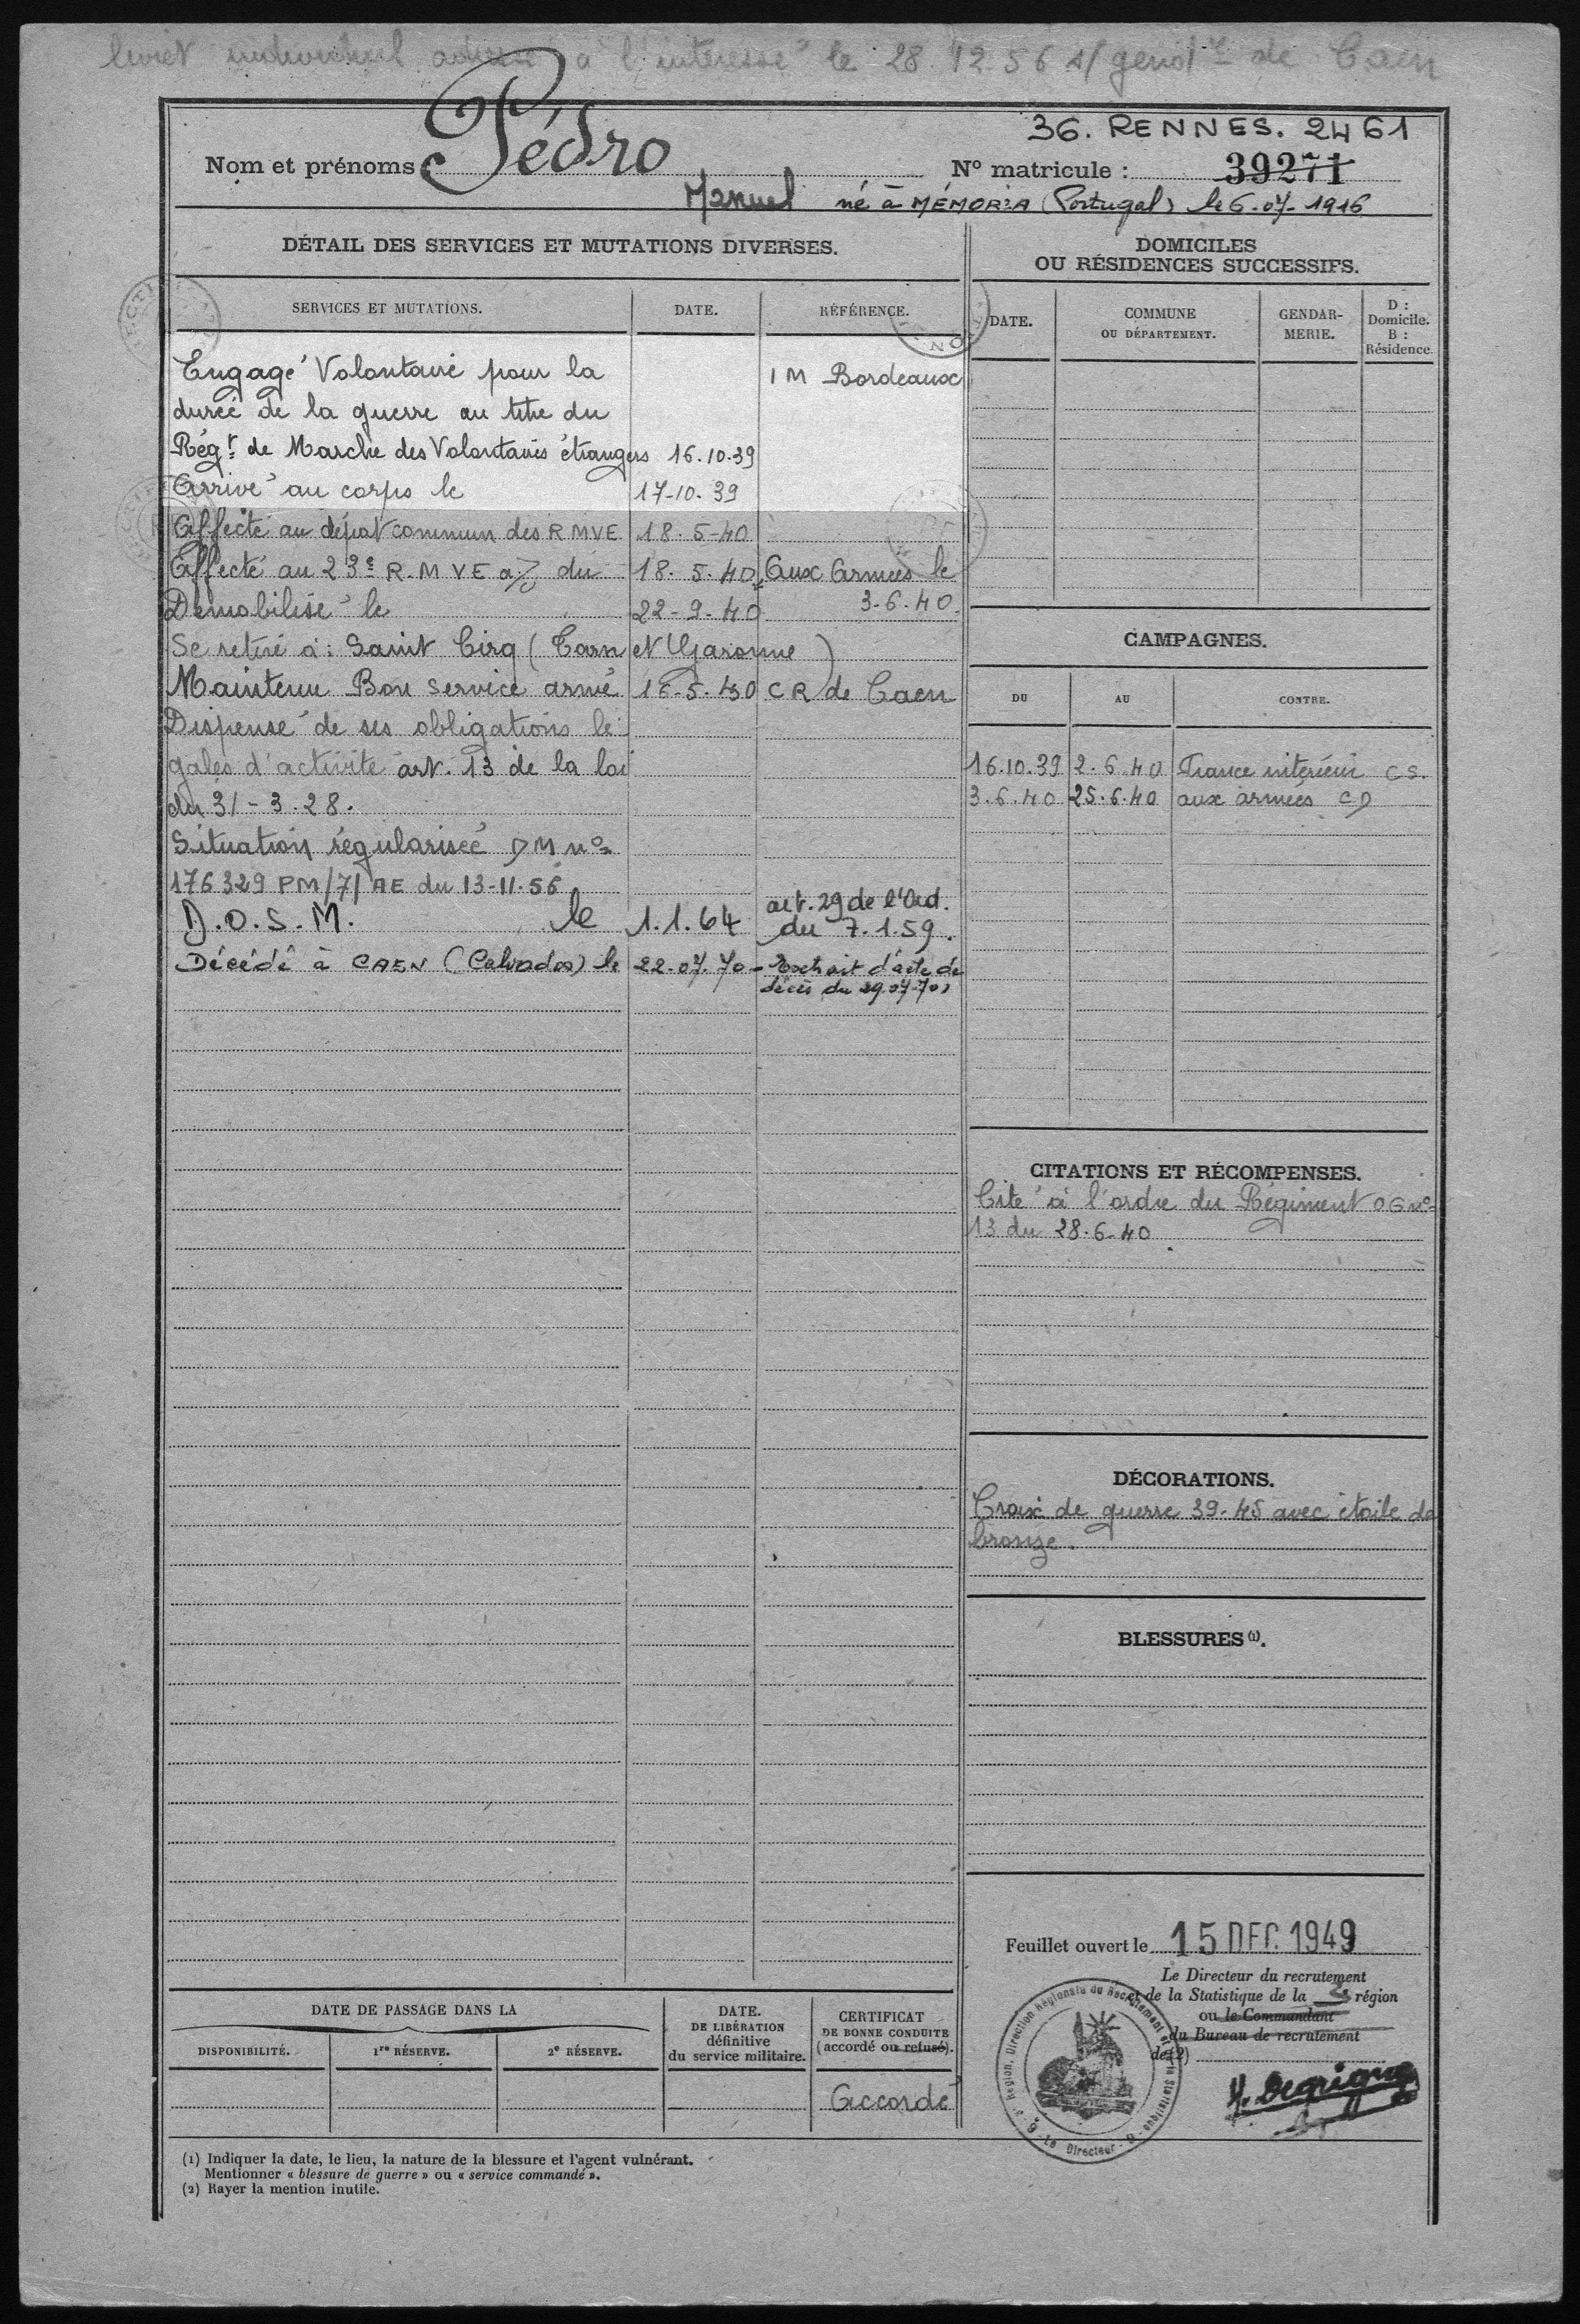 livret individuel adressé à l'intéressé le 28.12.56 s/ gend^ie de Caen
36. RENNES. 2461
Nom et prénoms : Pédro
N° matricule : 39271
Manuel né à MÉMORIA (Portugal) le 6-07-1916
DÉTAIL DES SERVICES ET MUTATIONS DIVERSES.
SERVICES ET MUTATIONS. DATE. RÉFÉRENCE.
Engagé Volontaire pour la 1M Bordeaux
durée de la guerre au titre du
Régt. de Marche des Volontaires étrangers 16.10.39
Arrivé au corps le 17-10.39
Affecté au dépôt commun des RMVE 18.5-40
Affecté au 23e R.M VE a/c du 18.5.40 Aux Armées le
Démobilisé le 22-9-40 3-6.40.
Se retire à : Saint Cirq (Tarn et Garonne)
Maintenu Bon service armé 16-5.50 CR de Caen
Dispensé de ses obligations lé
gales d'activité art. 13 de la loi
du 31-3.28.
Situation régularisée DM no
176329 PM/7/AE du 13-11-56
D.O.S.M. le 1.1.64 art. 29 de l'Ord.
du 7.1.59.
Décédé à CAEN (Calvados) le 22.07.70 - Extrait d'acte de
décès du 29.07.70
DOMICILES
OU RÉSIDENCES SUCCESSIFS.
DATE. COMMUNE OU DÉPARTEMENT. GENDAR-MERIE. D : Domicile. B : Résidence.
CAMPAGNES.
DU AU CONTRE.
16.10.39 2.6.40 France intérieur CS.
3.6.40 25.6.40 aux armées CD
CITATIONS ET RÉCOMPENSES.
Cité à l'ordre du Régiment OG no
13 du 28.6-40
DÉCORATIONS.
Croix de guerre 39-45 avec étoile de
bronze.
BLESSURES (1).
Feuillet ouvert le 15 DEC. 1949
Le Directeur du recrutement
et de la Statistique de la 3e région
ou le Commandant
du Bureau de recrutement
de (2)
DATE DE PASSAGE DANS LA
DISPONIBILITÉ. 1re RÉSERVE. 2e RÉSERVE.
DATE.
DE LIBÉRATION
définitive
du service militaire.
CERTIFICAT
DE BONNE CONDUITE
(accordé ou refusé).
Accordé
(1) Indiquer la date, le lieu, la nature de la blessure et l'agent vulnérant.
Mentionner « blessure de guerre » ou « service commandé ».
(2) Rayer la mention inutile.